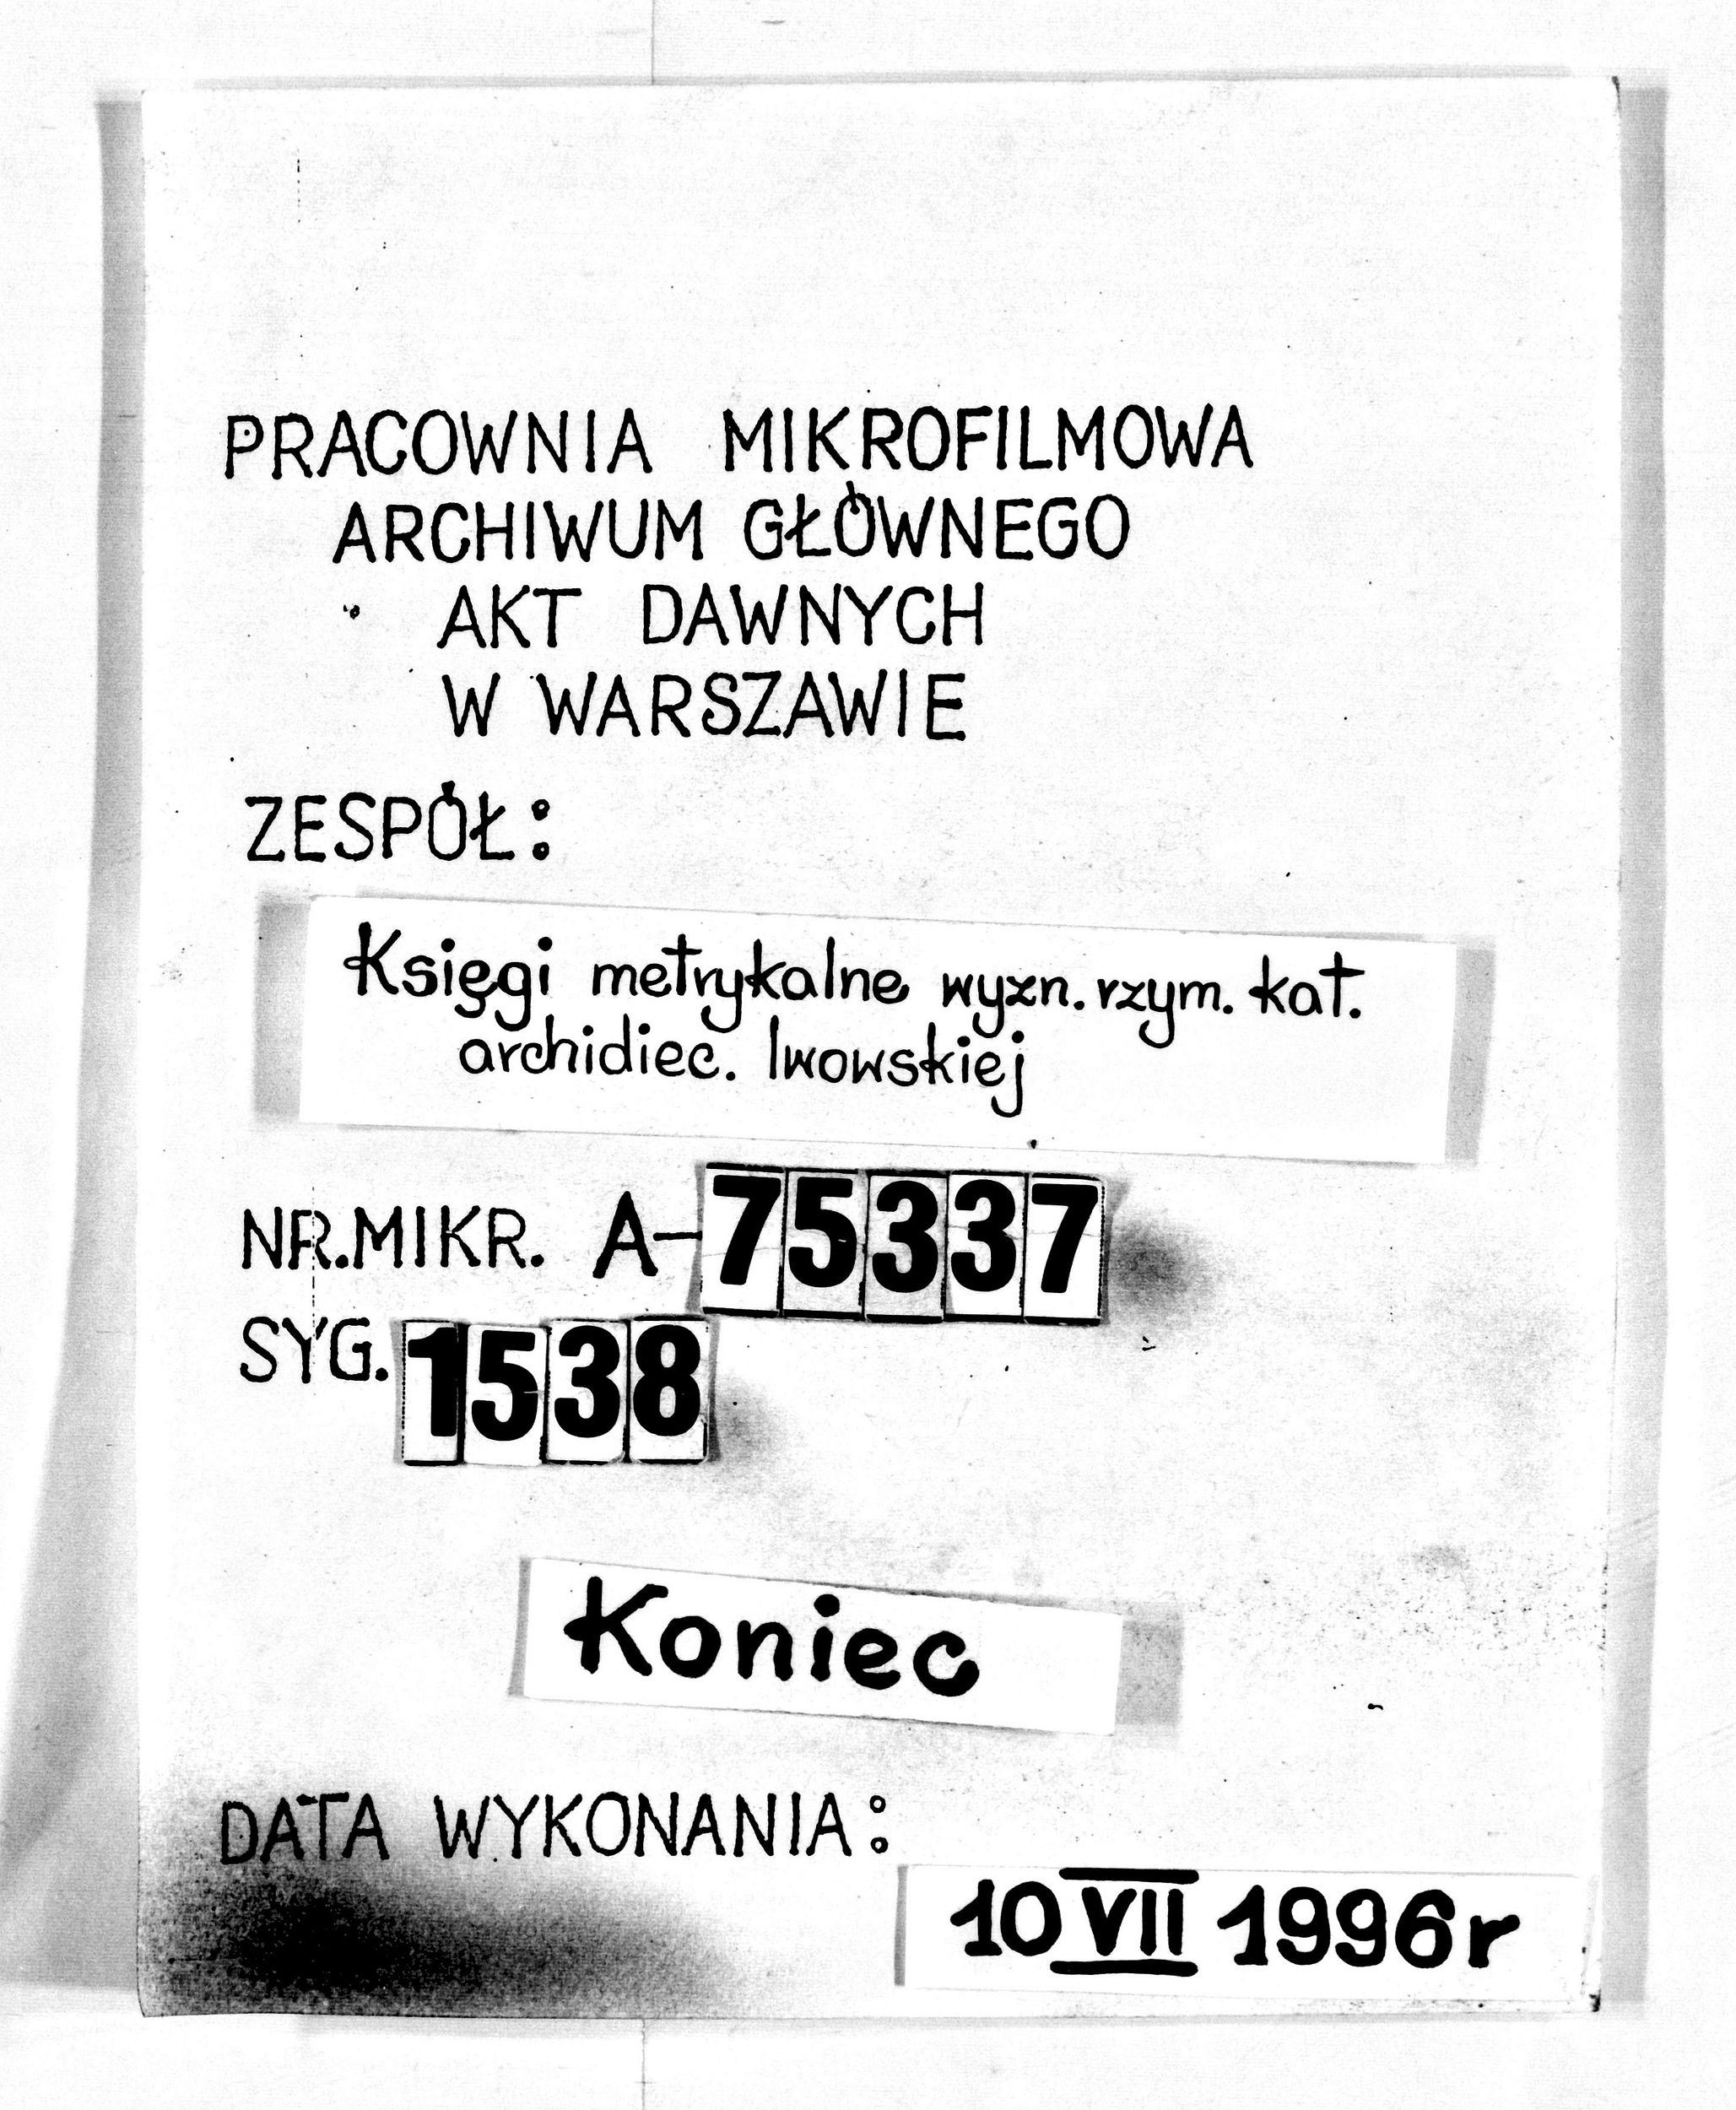 PRACOWNIA MIKROFILMOWA
ARCHIWUM GŁÓWNEGO
AKT DAWNYCH
W WARSZAWIE
ZESPÓŁ:
Księgi metrykalne wyzn. rzym. kat.
archidiec. lwowskiej
NR.MIKR. A-75337
SYG. 1538
Koniec
DATA WYKONANIA:
10 VII 1996r